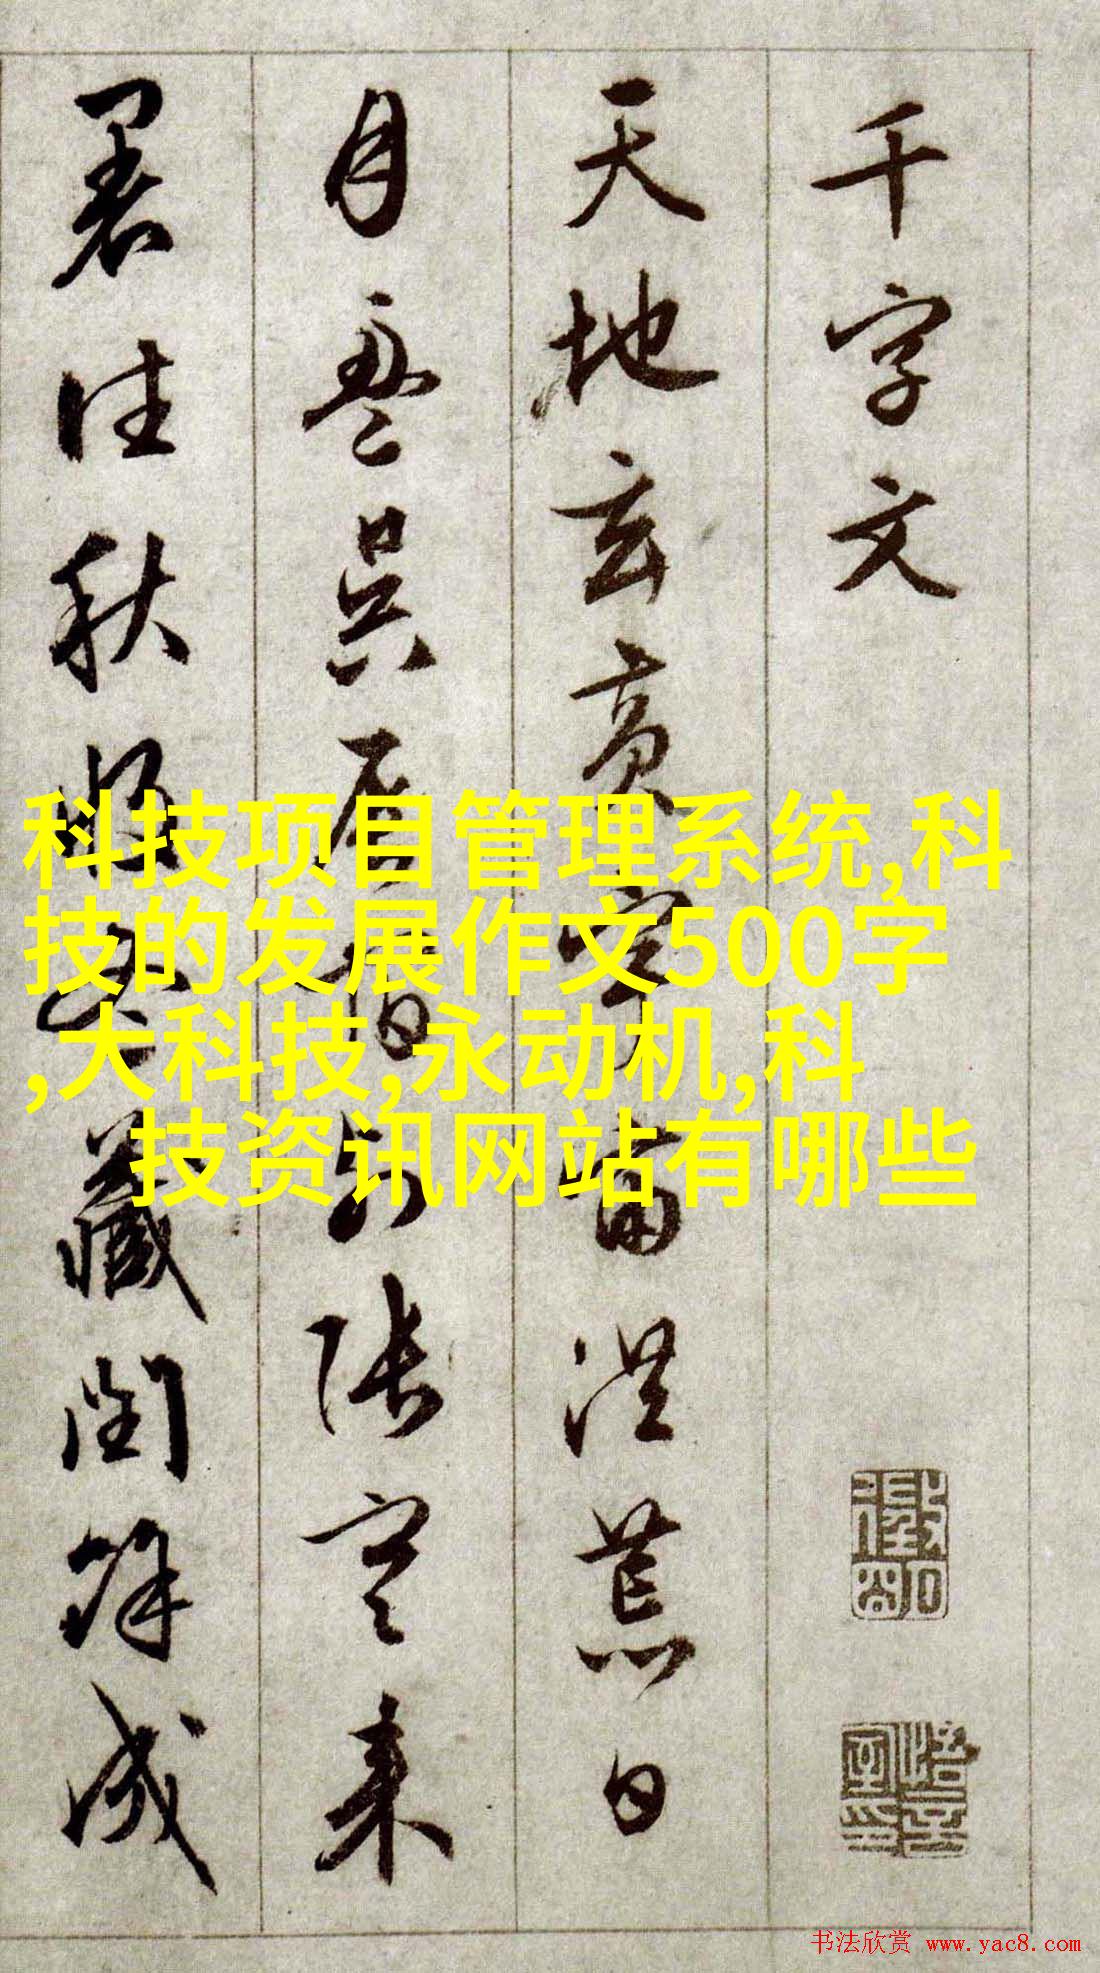 千字文
天地玄黄宇宙洪荒日
月盈昃辰宿列张寒来
暑往秋收冬藏闰馀成
科技项目管理系统,科
技的发展作文500字
,大科技,永动机,科
技资讯网站有哪些
书法欣赏 www.yac8.com